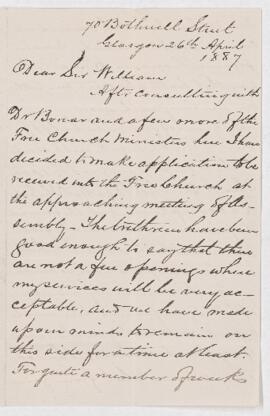 70 Bothwell Street
Glasgow 26th April
1887
Dear Sir William
After consulting with
Dr Bonar and a few more of the
Free Church Ministers here I have
decided to make application to be
received into the Free Church at
the approaching meeting of As-
sembly – The brethren have been
good enough to say that there
are not a few openings where
my services will be very ac-
ceptable, and we have made
up our minds to remain on
this side for a time at least.
For quite a number of weeks